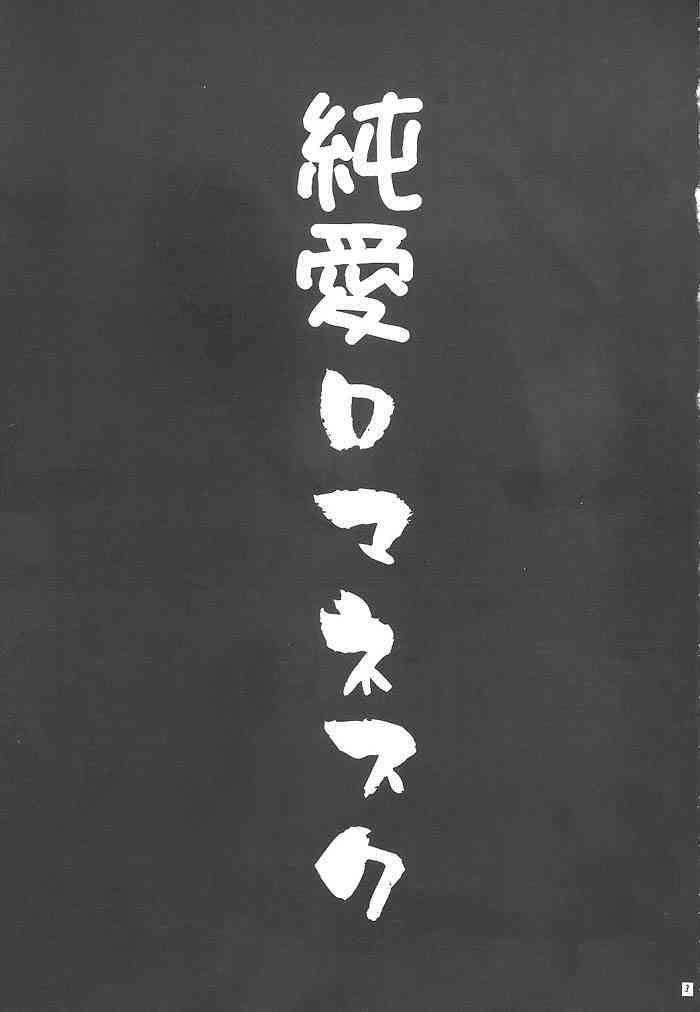 純愛ロマネスク
3